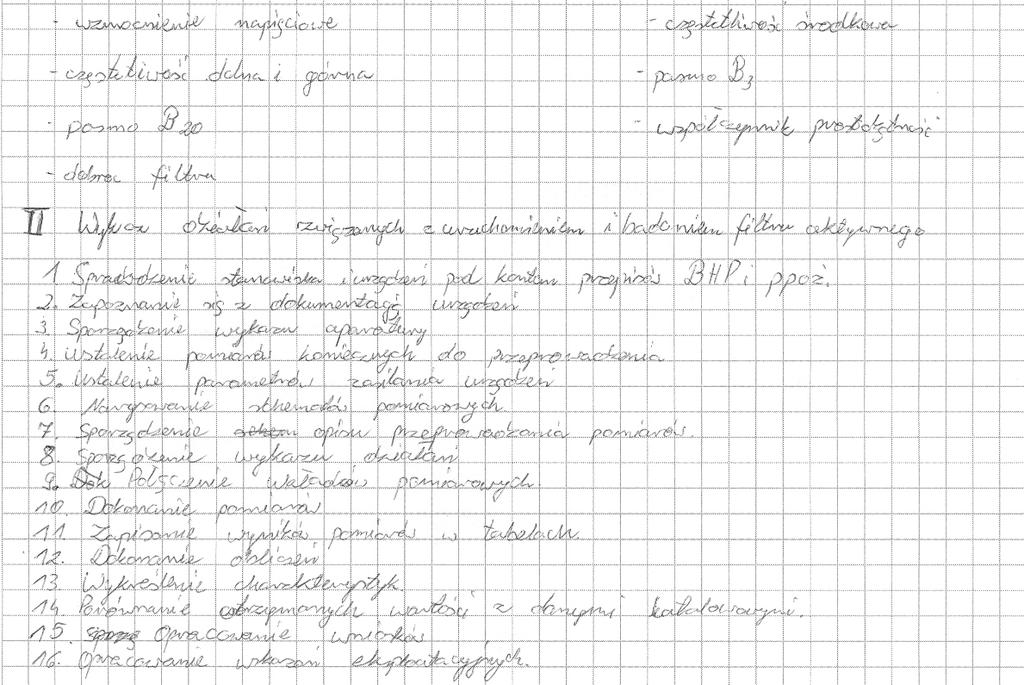 - wzmocnienie napięciowe
- częstotliwość środkowa
- częstotliwość dolna i górna
- pasmo B3
- pasmo B20
- współczynnik prostokątności
- dobroć filtru
II Wykaz działań związanych z uruchomieniem i badaniem filtru aktywnego
1. Sprawdzenie stanowiska i urządzeń pod kątem przepisów BHP i ppoż.
2. Zapoznanie się z dokumentacją urządzeń
3. Sporządzenie wykazu aparatury
4. Ustalenie pomiarów koniecznych do przeprowadzenia
5. Ustalenie parametrów zasilania urządzeń
6. Narysowanie schematów pomiarowych.
7. Sporządzenie opisu przeprowadzania pomiarów.
8. Sporządzenie wykazu działań
9. Połączenie układów pomiarowych.
10. Dokonanie pomiarów
11. Zapisanie wyników pomiarów w tabelach.
12. Dokonanie obliczeń
13. Wykreślenie charakterystyk.
14. Porównanie otrzymanych wartości z danymi katalogowymi.
15. Opracowanie wniosków
16. Opracowanie wskazań eksploatacyjnych.